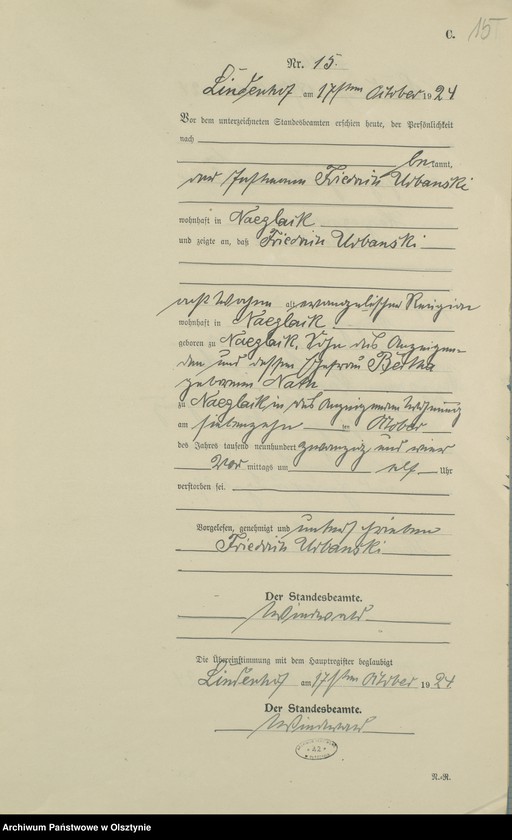 C. 15
Nr. 15.
Lindenhof am 17ten Oktober 1924
Vor dem unterzeichneten Standesbeamten erschien heute, der Persönlichkeit
nach
bekannt,
der Instmann Friedrich Urbanski
wohnhaft in Naeglack
und zeigte an, daß Friedrich Urbanski
acht Wochen alt evangelischer Religion
wohnhaft in Naeglack
geboren zu Naeglack, Sohn des Anzeigen-
den und dessen Ehefrau Bertha
geborenen Nath
zu Naeglack, in des Anzeigenden Wohnung
am siebenzehn ten Oktober
des Jahres tausend neunhundert zwanzig und vier
Vor mittags um elf Uhr
verstorben sei.
Vorgelesen, genehmigt und unterschrieben
Friedrich Urbanski
Der Standesbeamte.
Die Übereinstimmung mit dem Hauptregister beglaubigt
Lindenhof am 17ten Oktober 1924
Der Standesbeamte.
N.-R.
Archiwum Państwowe w Olsztynie